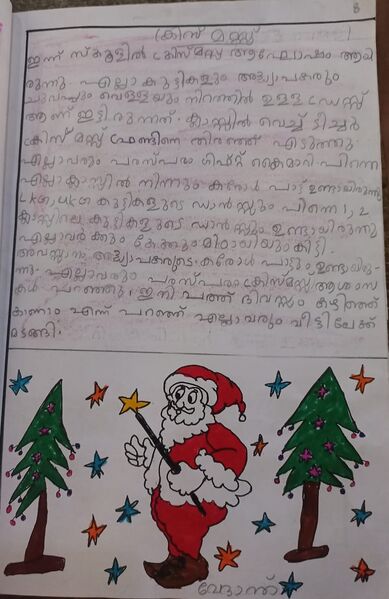 8
(ക്രിസ് മസ്സ്)
ഇന്ന് സ്കൂളിൽ ക്രിസ്മസ്സ് ആഘോഷം ആയി
രുന്നു. എല്ലാ കുട്ടികളും അദ്ധ്യാപകരും
ചുവപ്പും വെള്ളയും നിറത്തിൽ ഉള്ള ഡ്രസ്സ്
ആണ് ഇട്ടിരുന്നത്. ക്ലാസ്സിൽ വെച്ച് ടീച്ചർ
ക്രിസ്മസ്സ് ഫ്രണ്ടിനെ തിരഞ്ഞ് എടുത്തു
എല്ലാവരും പരസ്പരം ഗിഫ്റ്റ് കൈമാറി പിന്നെ
എല്ലാ ക്ലാസ്സിൽ നിന്നും കരോൾ പാട്ട് ഉണ്ടായിരുന്നു
LKG, UKG കുട്ടികളുടെ ഡാൻസ്സും പിന്നെ 1, 2
ക്ലാസ്സിലെ കുട്ടികളുടെ ഡാൻസ്സും ഉണ്ടായിരുന്നു
എല്ലാവർക്കും കേക്കും മിഠായിയും കിട്ടി.
അവസ്സാനം അദ്ധ്യാപകരുടെ കരോൾ പാട്ടും ഉണ്ടായിരു
ന്നു. എല്ലാവരും പരസ്പരം ക്രിസ്മസ്സ് ആശംസ
കൾ പറഞ്ഞു. ഇനി പത്ത് ദിവസം കഴിഞ്ഞ്
കാണാം എന്ന് പറഞ്ഞ് എല്ലാവരും വീട്ടിലേക്ക്
മടങ്ങി.
വേദാന്ത്